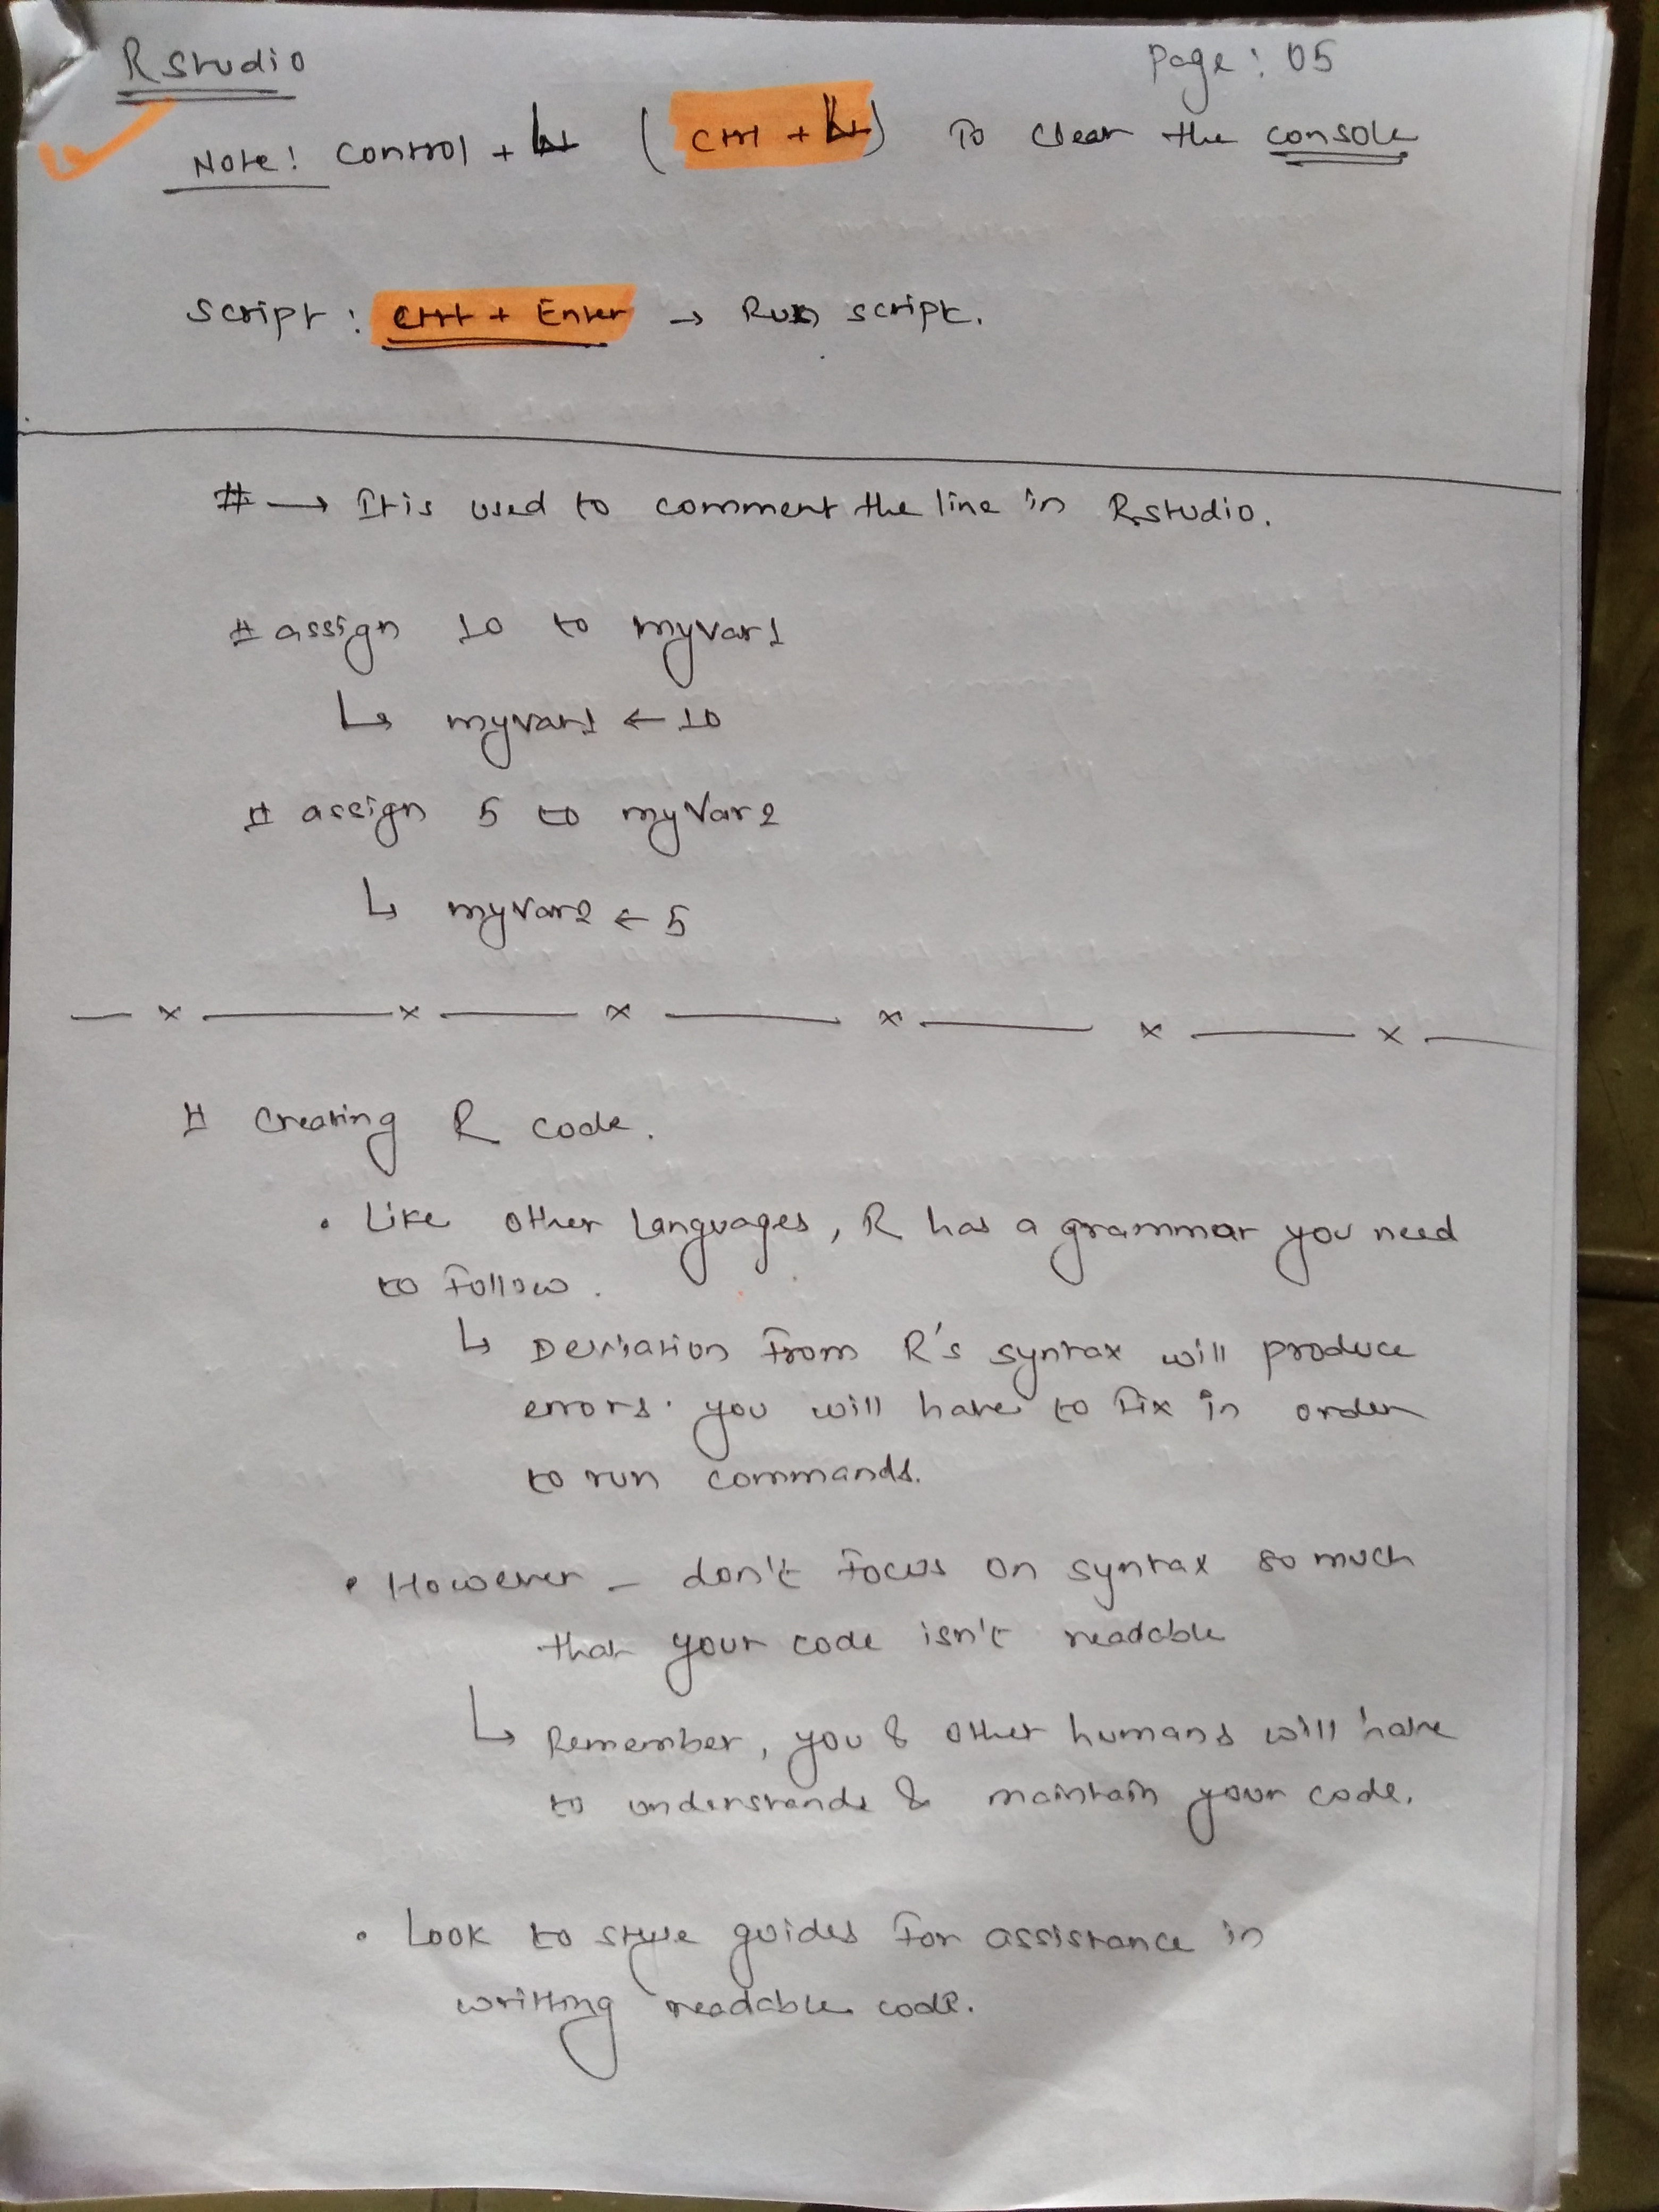 RStudio
Page: 05
Note! Control + L (Ctrl + L) To clear the console
Script: Ctrl + Enter → Run script.
# → It is used to comment the line in Rstudio.
# assign 10 to myVar1
↳ myVar1 ← 10
# assign 5 to myVar2
↳ myVar2 ← 5
— x — x — x — x — x — x —
# Creating R code.
• Like other languages, R has a grammar you need
to follow.
↳ Deviation from R's syntax will produce
errors. you will have to fix in order
to run commands.
• However – don't focus on syntax so much
that your code isn't readable
↳ Remember, you & other humans will have
to understands & maintain your code.
• Look to style guides for assistance in
writting readable code.